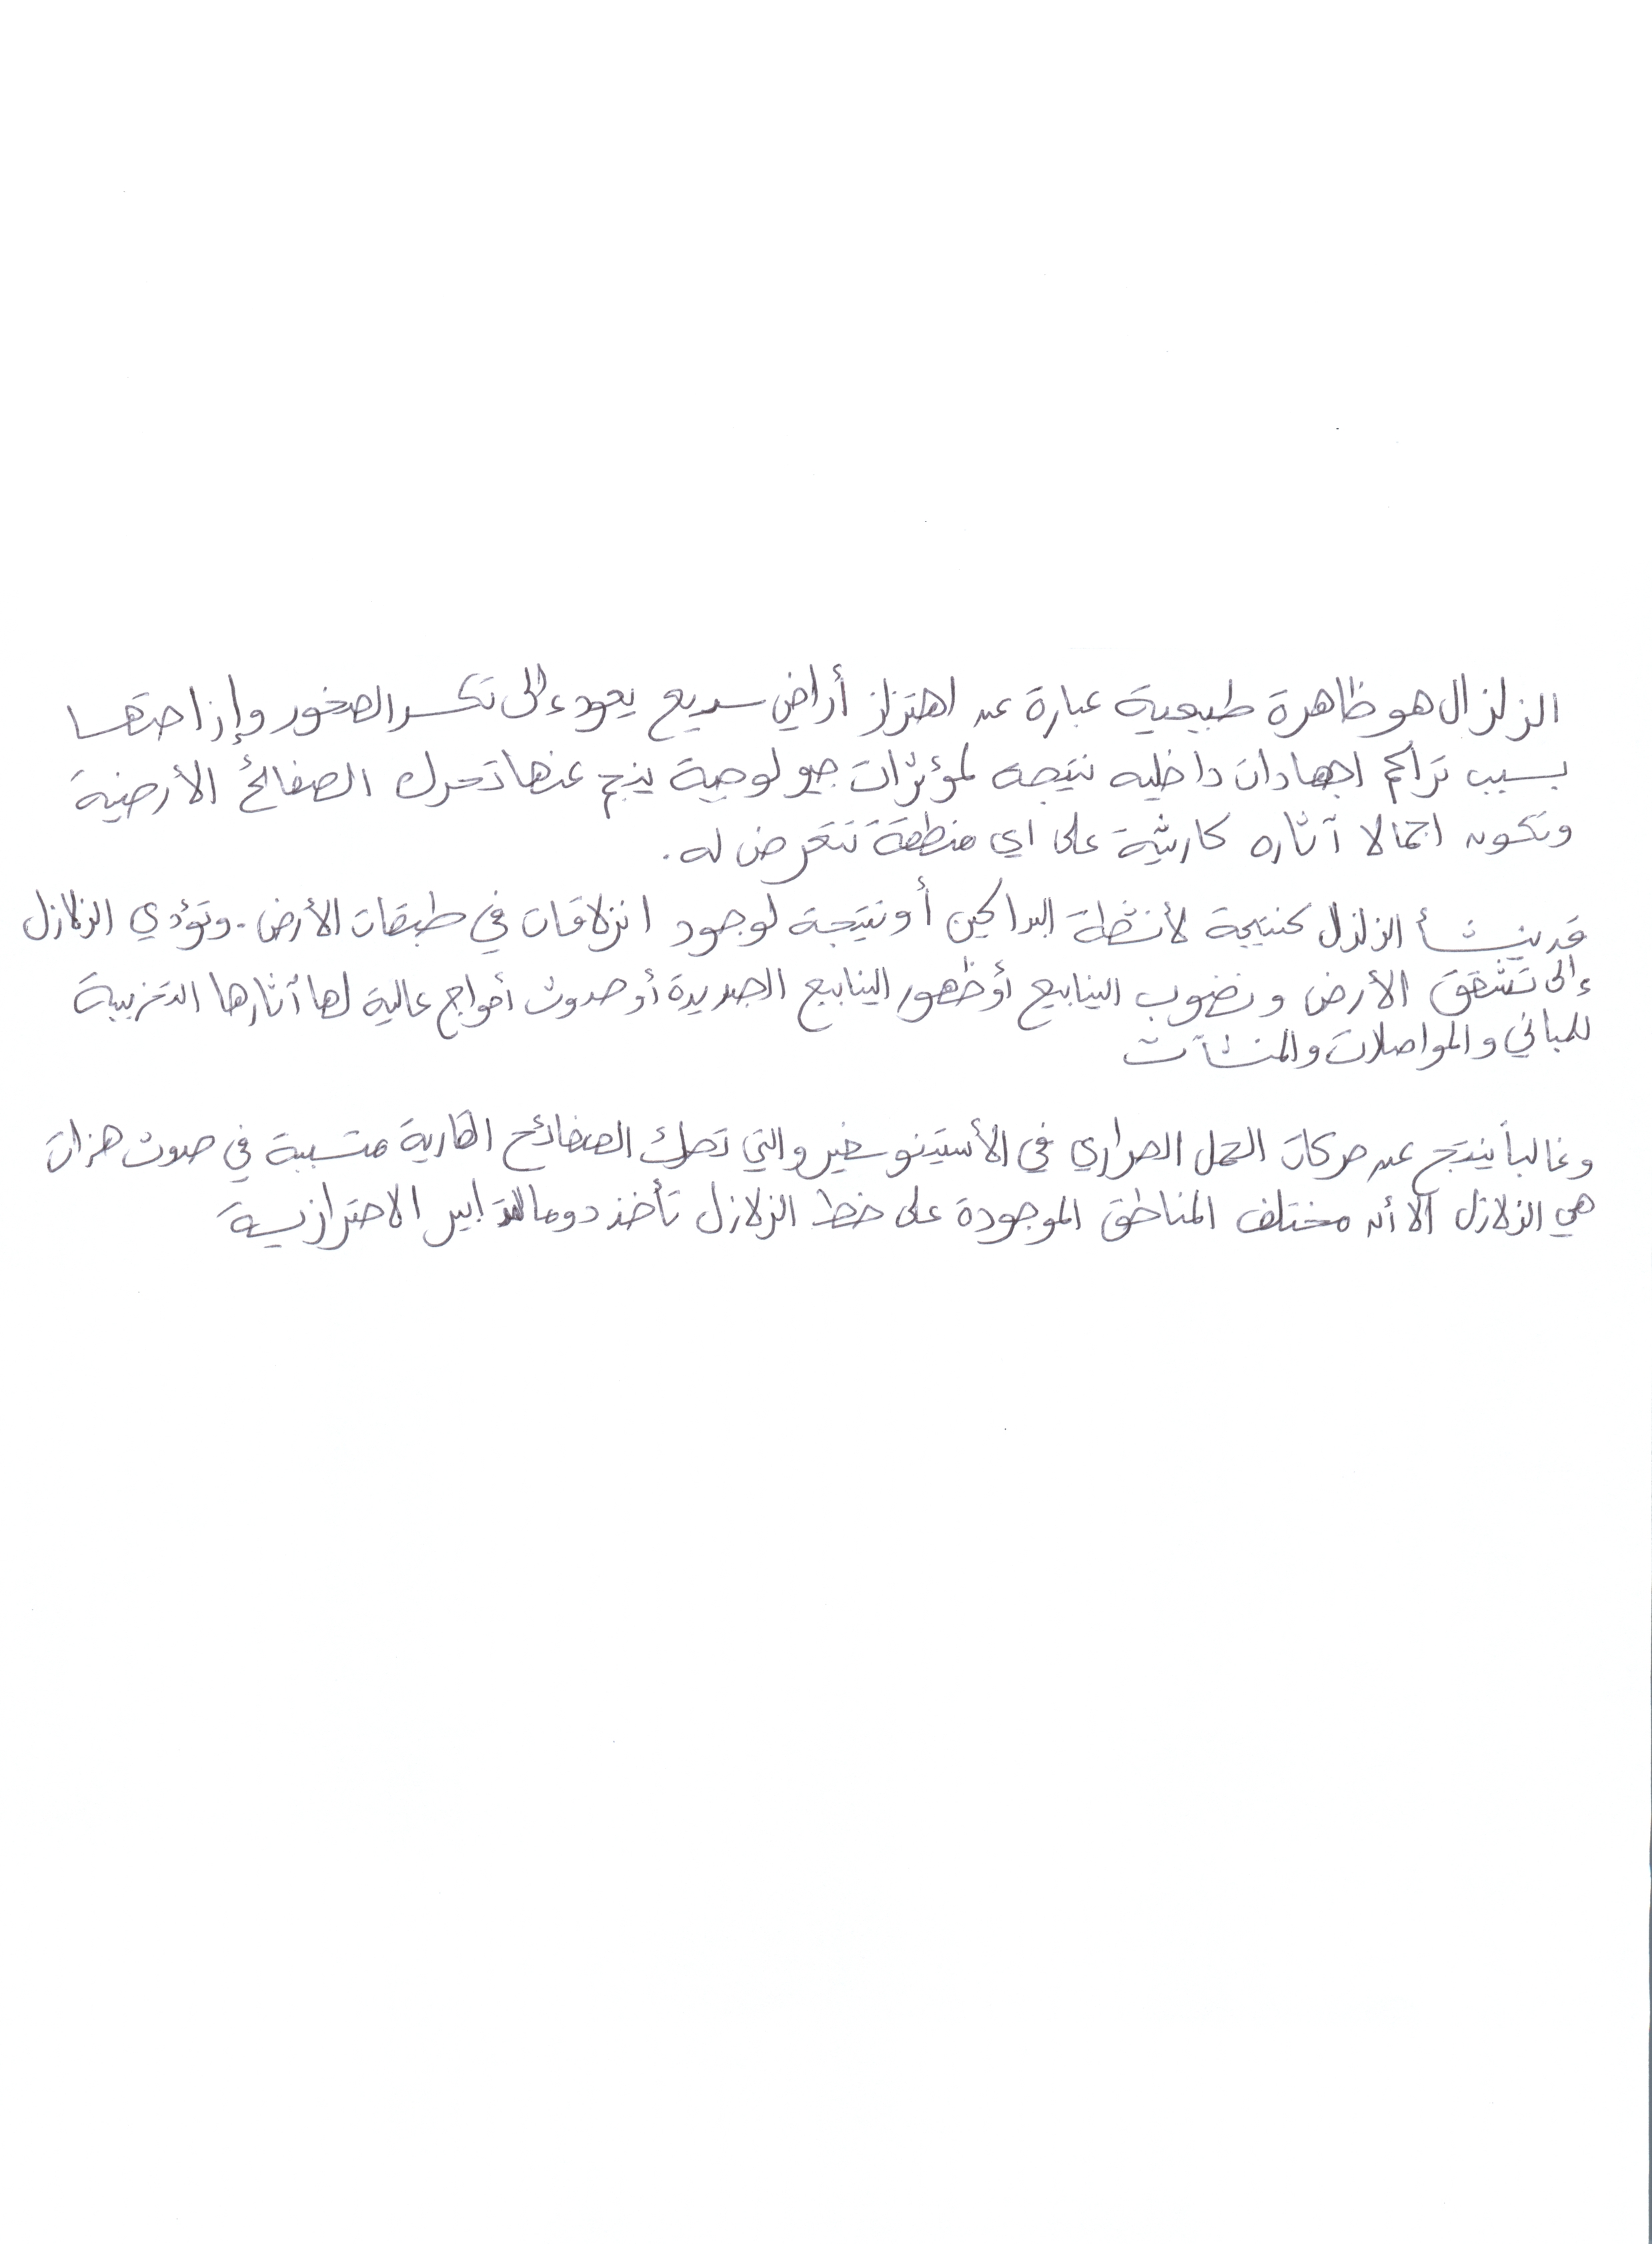 الزلزال هو ظاهرة طبيعية عبارة عن اهتزاز أراضي سريع يعود إلى تكسر الصخور وإزاحتها
بسبب تراكم اجهادات داخليه نتيجه لمؤثرات جيولوجية ينجم عنها تحرك الصفائح الأرضية
وتكون اجمالا آثاره كارثية على اي منطقة تتعرض له.
قد ينشأ الزلزال كنتيجة لأنشطة البراكين أو نتيجة لوجود انزلاقات في طبقات الأرض. وتؤدي الزلازل
إلى تشقق الأرض ونضوب الينابيع أو ظهور الينابيع الجديدة أو حدوث أمواج عالية لها آثارها التخريبية
للمباني والمواصلات والمنشآت
وغالباً ينتج عن حركات الحمل الحراري في الأستينوسفير والتي تحرك الصفائح القارية متسببة في حدوث هزات
هي الزلازل الا أن مختلف المناطق الموجودة على خط الزلازل تأخذ دوما التدابير الاحترازية